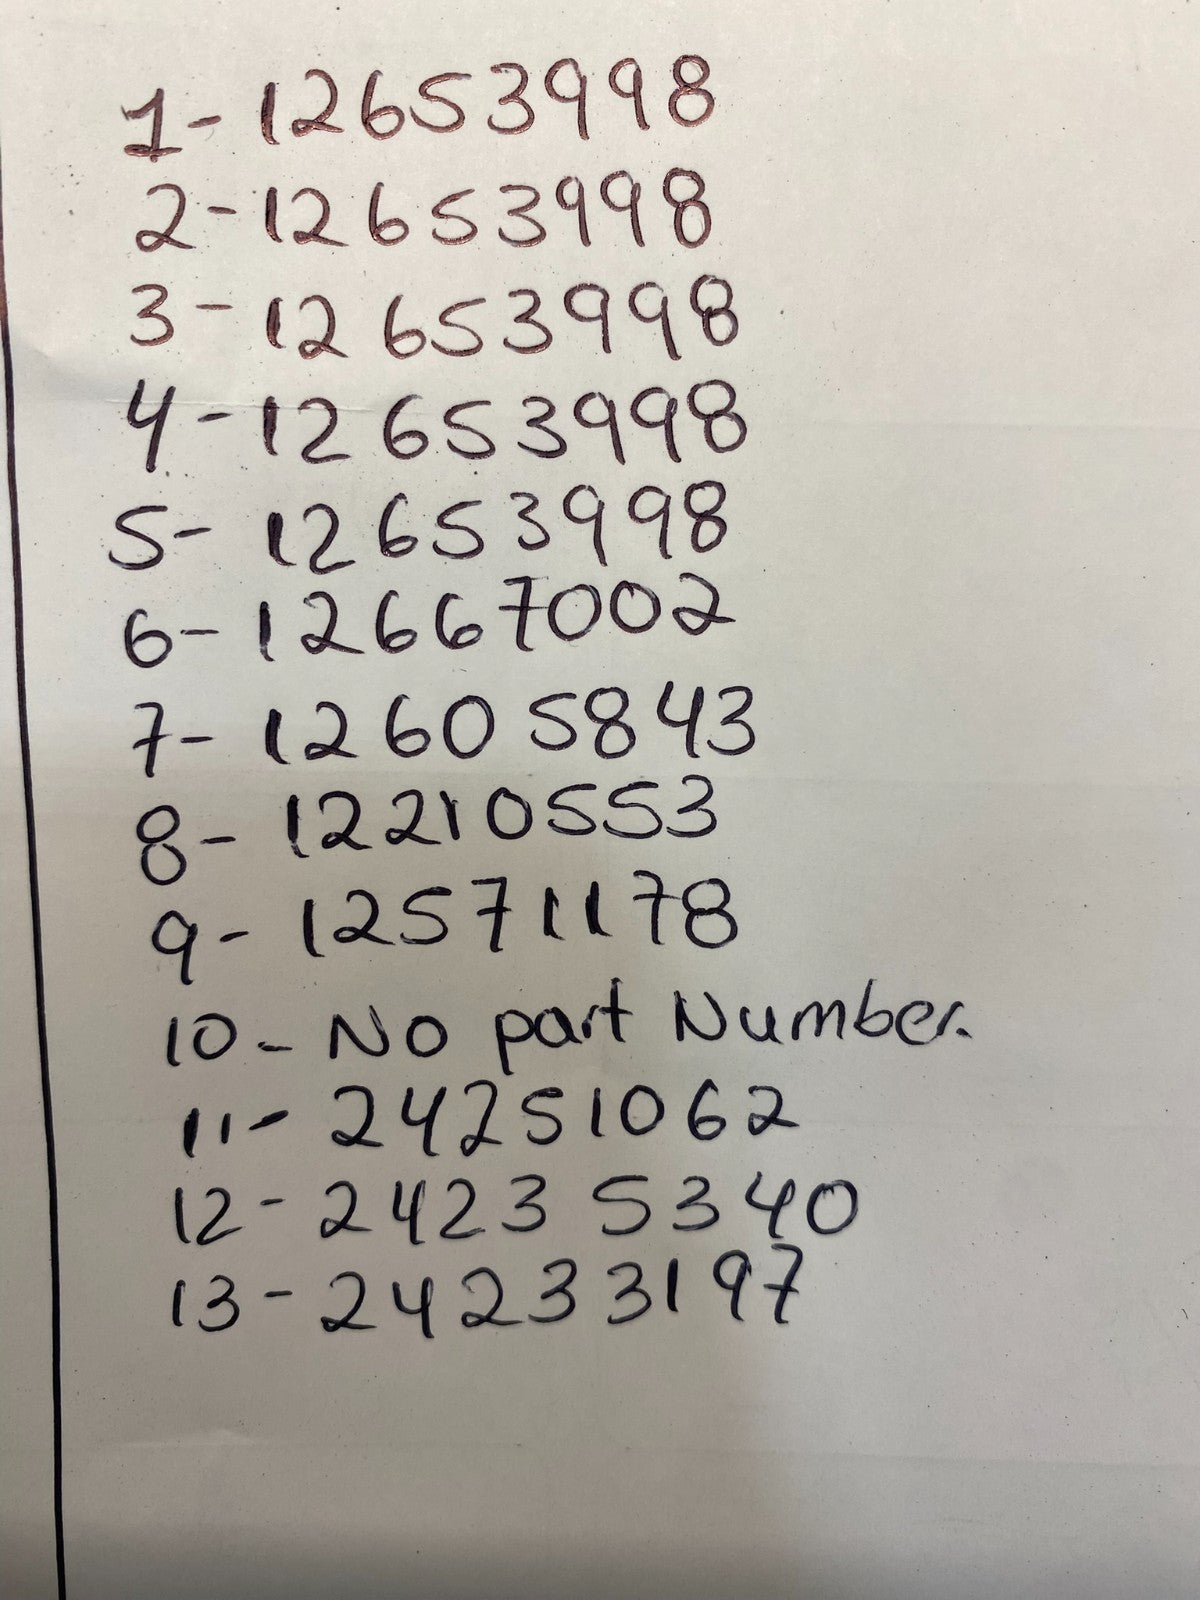 1- 12653998
2- 12653998
3- 12653998
4- 12653998
5- 12653998
6- 12667002
7- 12605843
8- 12210553
9- 12571178
10- No part Number.
11- 24251062
12- 24235340
13- 24233197